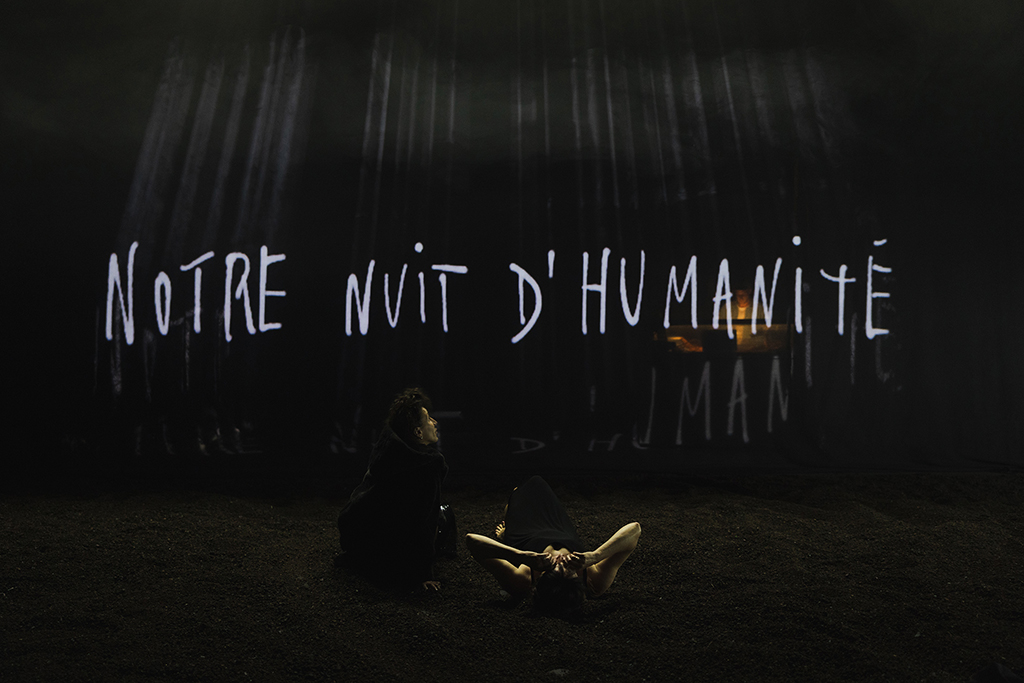 NOTRE NUIT D'HUMANITÉ